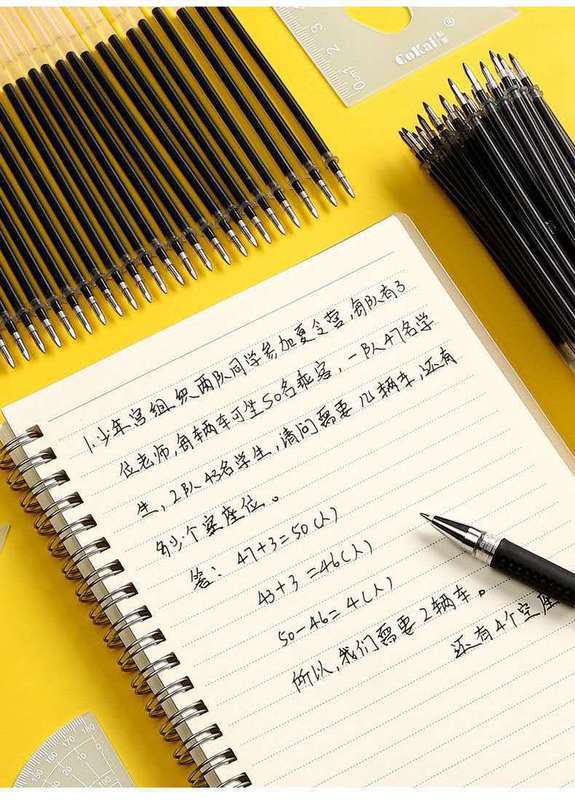 CoKai
1.少年宫组织两队同学参加夏令营,每队有3
位老师,每辆车可坐50名乘客,一队47名学
生,2队43名学生,请问需要几辆车,还有
多少个空座位。
答:47+3=50(人)
43+3=46(人)
50-46=4(人)
所以,我们需要2辆车。
还有4个空座
0cm 1 2 3